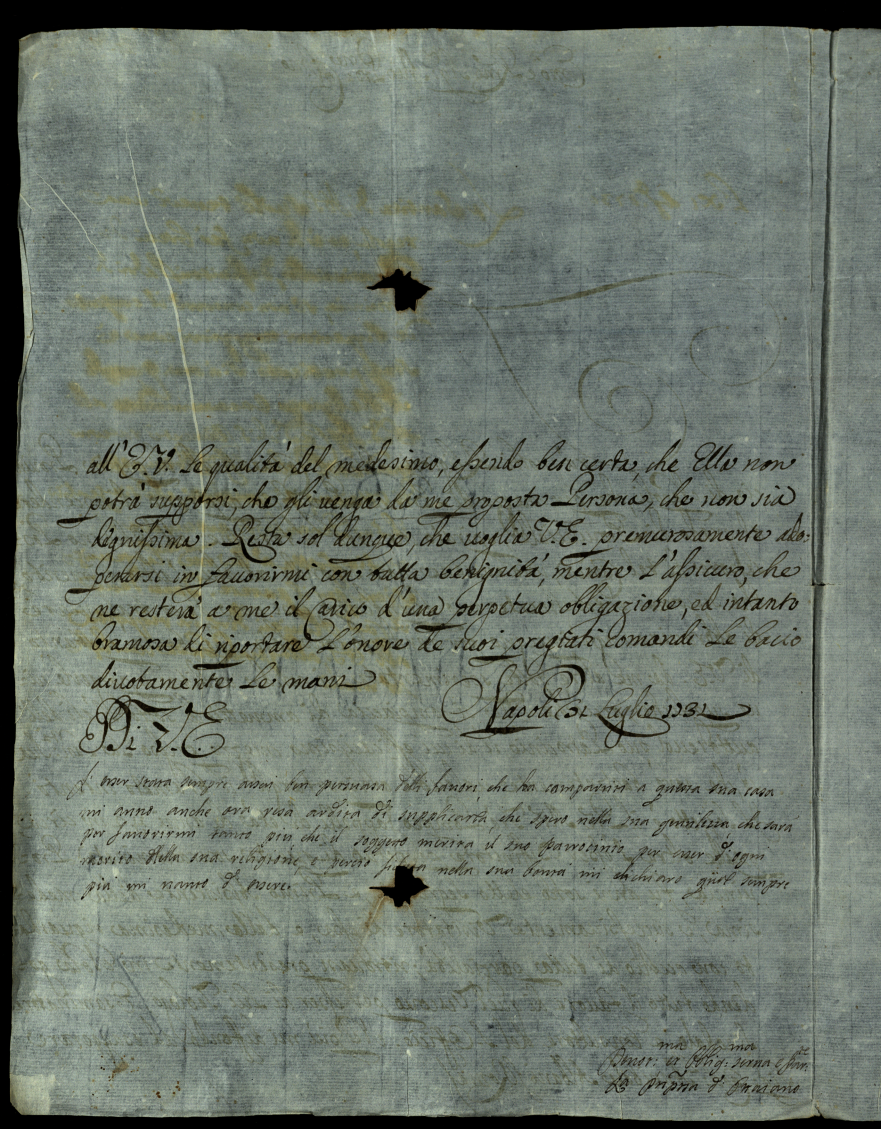 all'E.V. le qualità del medesimo, essendo ben certa, che Ella non
potrà supporsi, che gli venga da me proposta Persona, che non sia
dignissima. Resta sol dunque, che voglia V.E. premurosamente ado:
perarsi in favorirmi con tutta benignità, mentre l'assicuro, che
ne resterà a me il carico d'una perpetua obligazione, ed intanto
bramosa di riportare l'onore de suoi pregiati comandi le bacio
divotamente le mani
Napoli 31 Luglio 1731
Di V.E.
esser stata sempre assai ben persuasa delli favori che ha compartiti a questa sua casa
mi anno anche ora resa ardita di supplicarla che spero nella sua gentilezza che sarà
per favorirmi tanto più che il soggetto merita il suo patrocinio per esser d'ogni
merito della sua religione, e perciò nella sua bontà mi dichiaro sempre
più mi vanto d'essere
Devot:ma et Oblig:ma serva
La d'